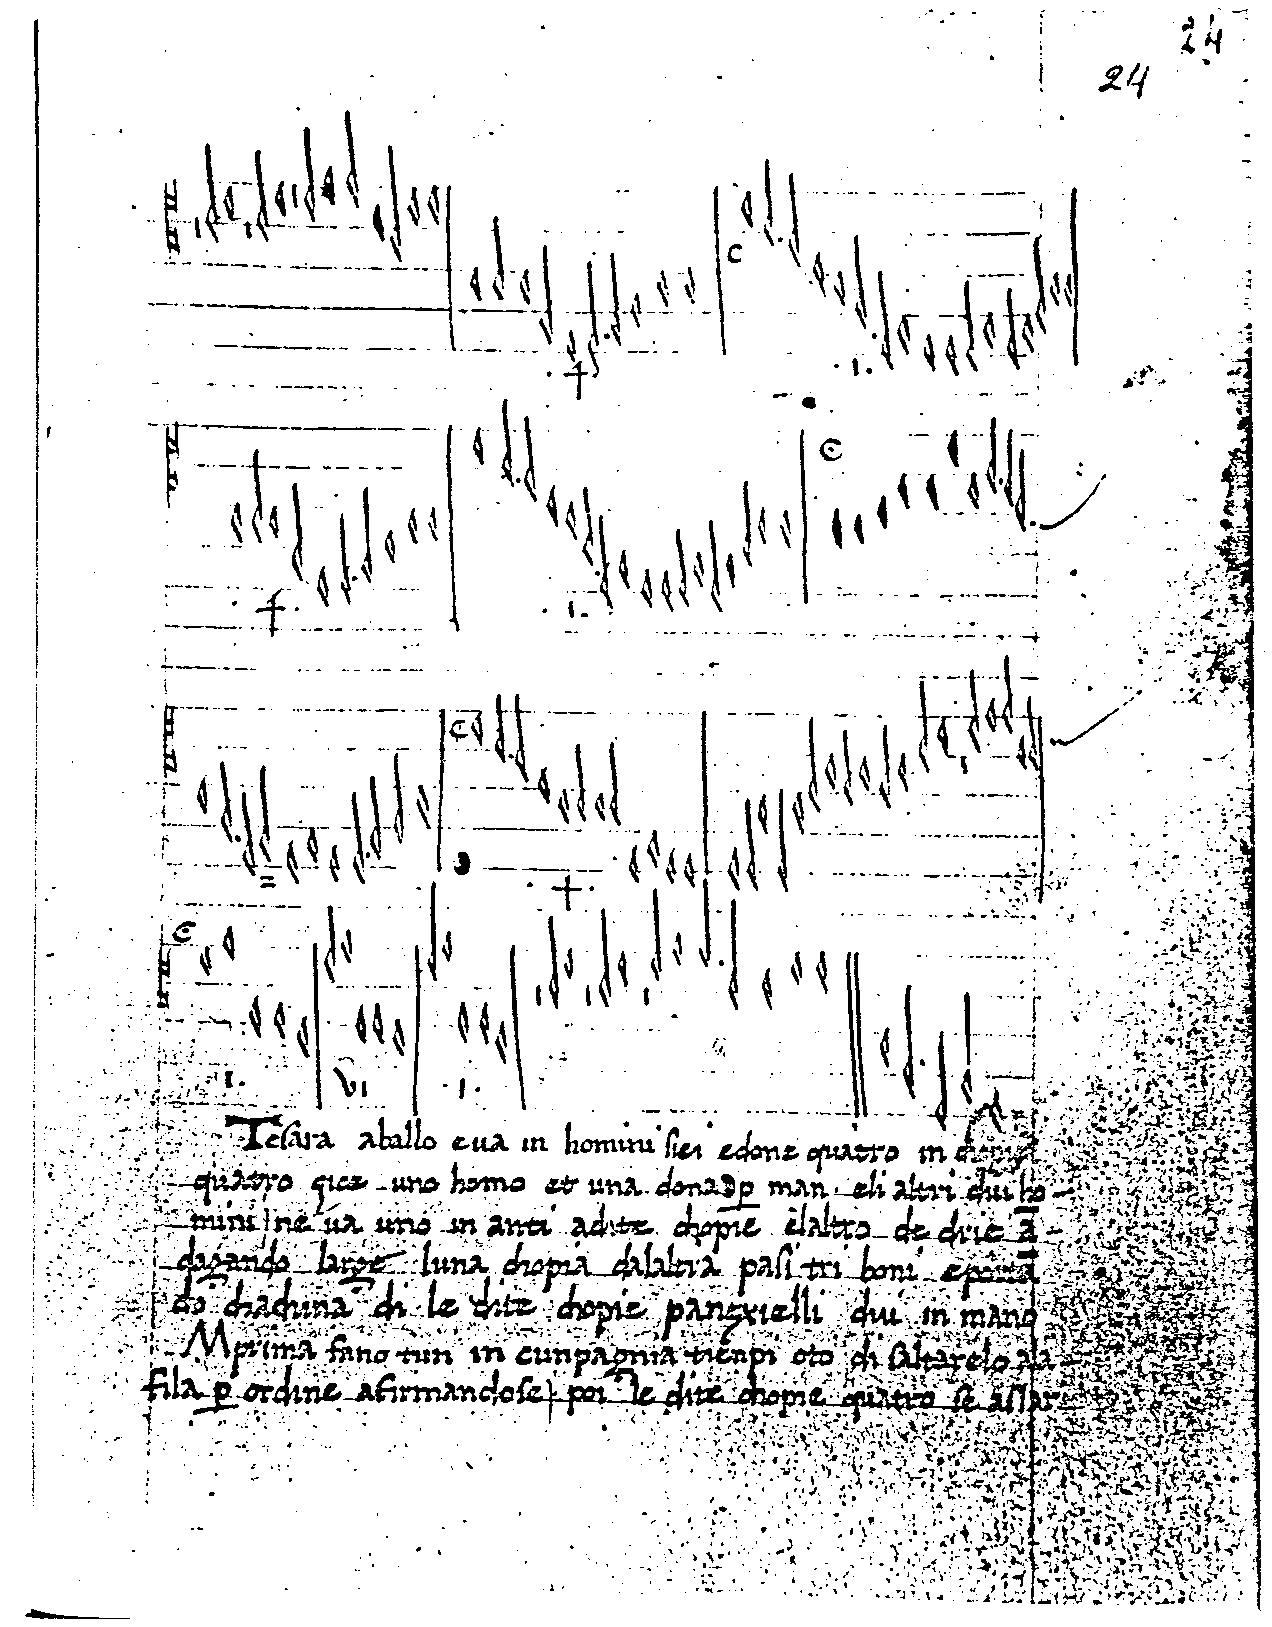 24
24
C
C
C
C
I. VI .I.
Tesara aballo eua in homini siei edone quatro in
quatro çioe uno homo et una dona p man eli altri dui ho
mini ne ua uno in anti adite chopie elaltro de drie a
dagando large luna chopia dalaltra pasi tri boni
do chaduna di le dite chopie dui in mano
Mprima fano tun in cunpagnia tienpi oto di saltarelo ala
fila p ordine afirmandose poi le dite chopie quatro se assar